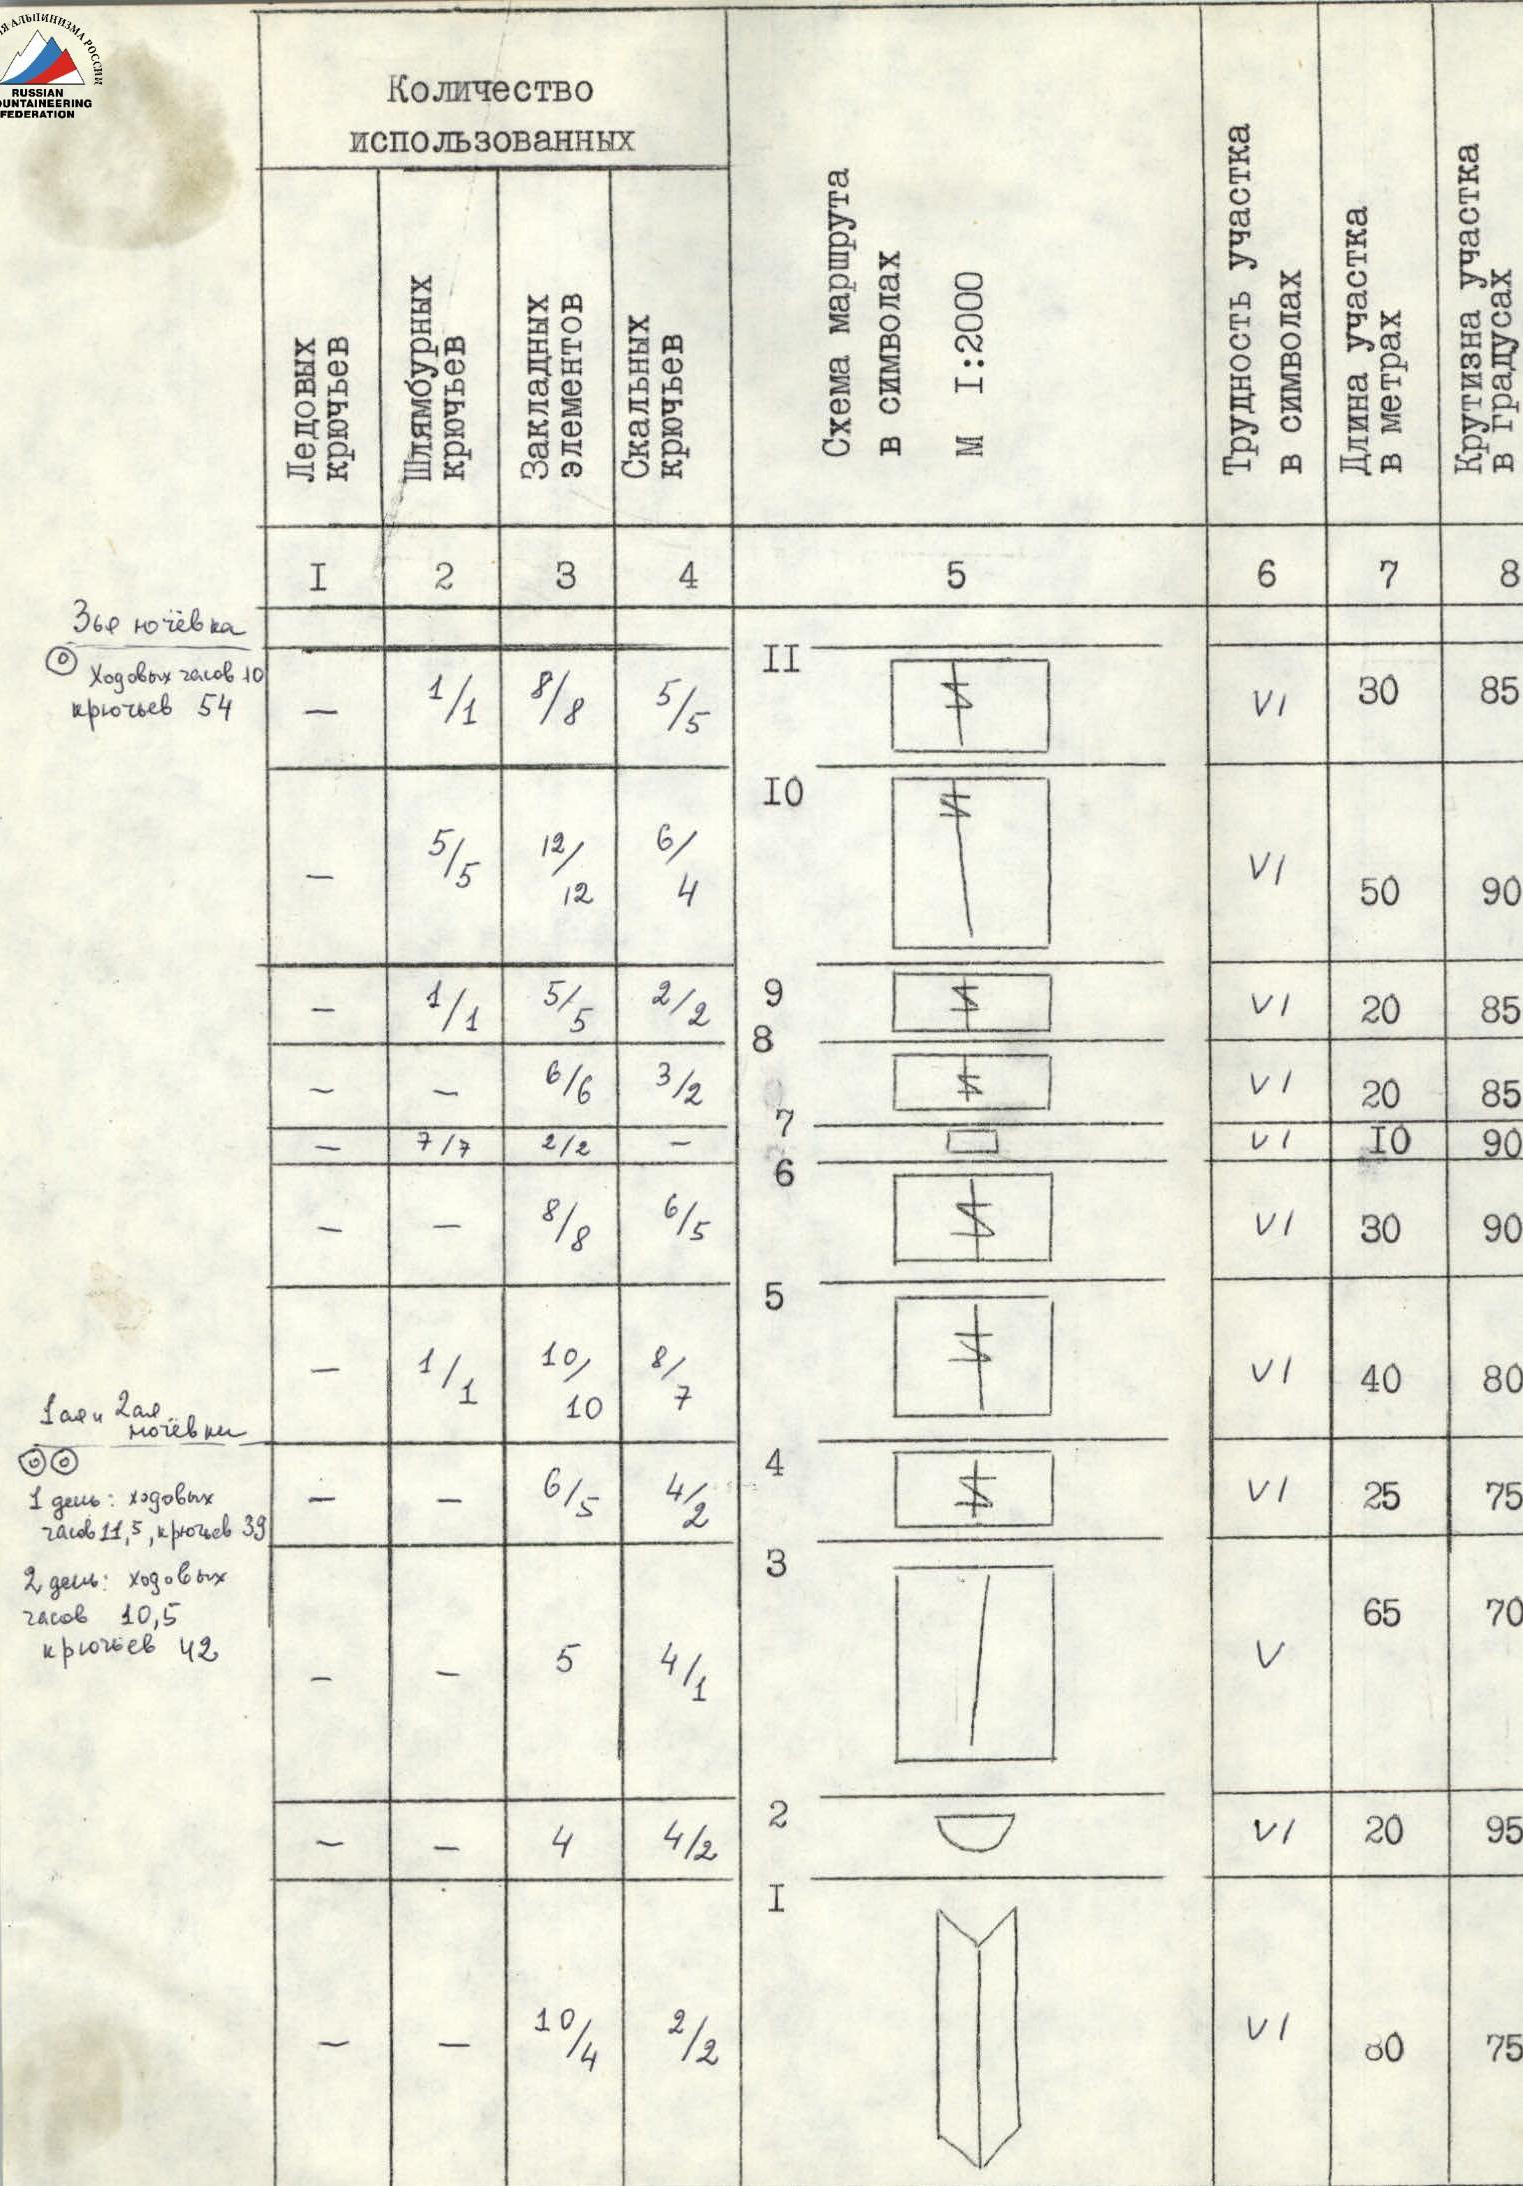 Количество
использованных
Ледовых
крючьев
Шлямбурных
крючьев
Закладных
элементов
Скальных
крючьев
Схема маршрута
в символах
М I:2000
Трудность участка
в символах
Длина участка
в метрах
Крутизна участка
в градусах
I 2 3 4 5 6 7 8
3ья ночёвка
Ходовых часов 10
крючьев 54
II
— 1/1 8/8 5/5 VI 30 85
I0
— 5/5 12/12 6/4 VI 50 90
9
— 1/1 5/5 2/2 VI 20 85
8
— — 6/6 3/2 VI 20 85
7
— 7/7 2/2 — VI I0 90
6
— — 8/8 6/5 VI 30 90
5
— 1/1 10/10 8/7 VI 40 80
1ая и 2ая
ночёвки
4
— — 6/5 4/2 VI 25 75
1 день: ходовых
часов 11,5, крючьев 39
2 день: ходовых
часов 10,5
крючьев 42
3
— — 5 4/1 V 65 70
2
— — 4 4/2 VI 20 95
I
— — 10/4 2/2 VI 75
RUSSIAN
FEDERATION